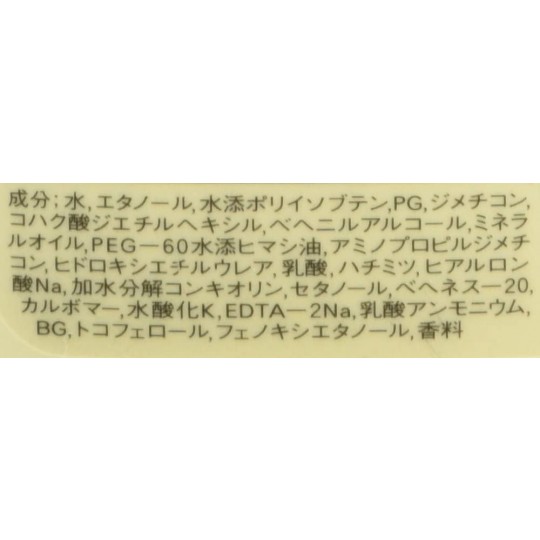 成分;水,エタノール,水添ポリイソブテン,PG,ジメチコン,
コハク酸ジエチルヘキシル,ベヘニルアルコール,ミネラ
ルオイル,PEG－60水添ヒマシ油,アミノプロピルジメチ
コン,ヒドロキシエチルウレア,乳酸,ハチミツ,ヒアルロン
酸Na,加水分解コンキオリン,セタノール,ベヘネス－20,
カルボマー,水酸化K,EDTA－2Na,乳酸アンモニウム,
BG,トコフェロール,フェノキシエタノール,香料